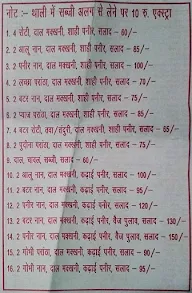 नोट :- थाली में सब्जी अलग से लेने पर 10 रु. एक्स्ट्रा
1. 4 रोटी, दाल मक्खनी, शाही पनीर, सलाद - 60/-
2. 2 आलू नान, दाल मक्खनी, शाही पनीर, सलाद - 85/-
3. 2 पनीर नान, दाल मक्खनी, शाही पनीर, सलाद - 100/-
4. 2 लच्छा परांठा, दाल मक्खनी, शाही पनीर, सलाद - 70/-
5. 2 बटर नान, दाल मक्खनी, शाही पनीर, सलाद - 75/-
6. 2 प्याज परांठा, दाल मक्खनी, शाही पनीर, सलाद - 85/-
7. 4 बटर रोटी, तवा/तंदूरी, दाल मक्खनी, शाही पनीर, सलाद - 65/-
8. 2 पुदीना परांठा, दाल मक्खनी, शाही पनीर, सलाद - 75/-
9. दाल, चावल, सब्जी, सलाद - 60/-
10. 2 आलू नान, दाल मक्खनी, कढ़ाई पनीर, सलाद - 100/-
11. 2 बटर नान, दाल मक्खनी, कढ़ाई पनीर, सलाद - 95/-
12. 2 पनीर नान, दाल मक्खनी, कढ़ाई पनीर, सलाद - 120/-
13. 2 बटर नान, दाल मक्खनी, कढ़ाई पनीर, वैज पुलाव, सलाद - 130/-
14. 2 पनीर नान, दाल मक्खनी, कढ़ाई पनीर, वैज पुलाव, सलाद - 150/-
15. 2 गोभी परांठा, दाल मक्खनी, कढ़ाई पनीर, सलाद - 90/-
16. 2 गोभी नान, दाल मक्खनी, कढ़ाई पनीर, सलाद - 95/-